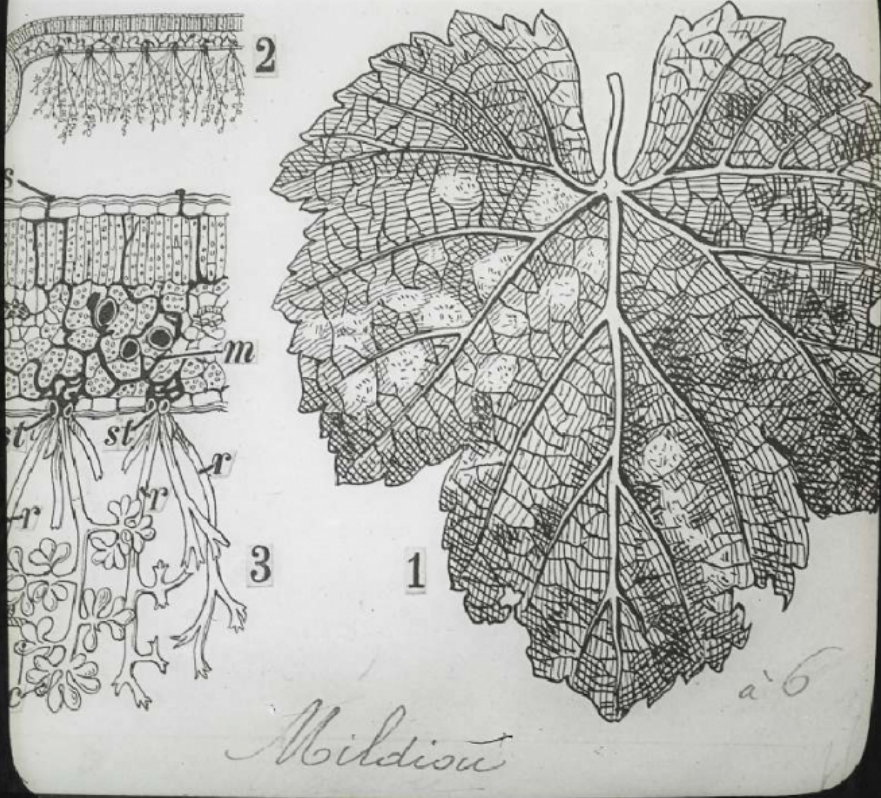 2
s
m
st
st
r
r
r
3
1
c
à 6
Mildiou